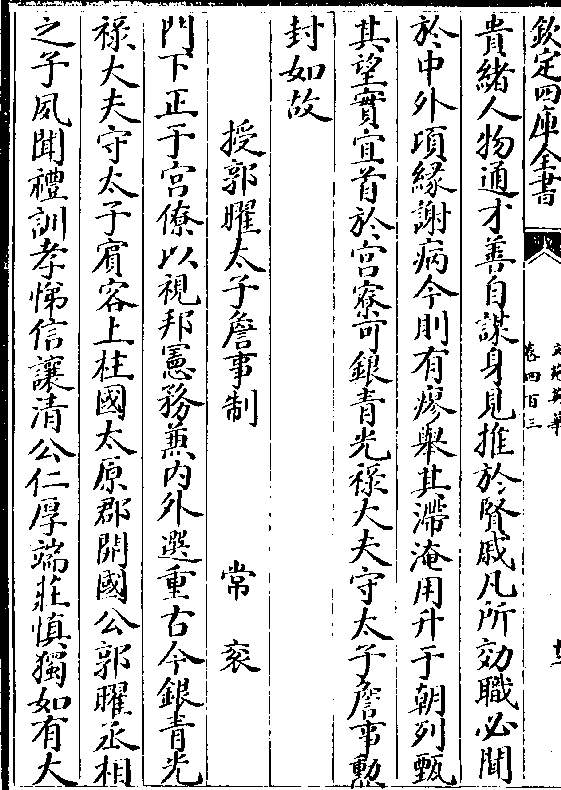 欽定四庫全書
文苑英華
卷四百三
貴緒人物通才善自謀身見推於賢戚凡所効職必聞
於中外項緣謝病今則有瘳舉其滯淹用升于朝列甄
其望實宜首於宫寮可銀青光禄大夫守太子詹事勲
封如故
授郭曜太子詹事制 常衮
門下正于宫僚以視邦憲務兼内外選重古今銀青光
禄大夫守太子賓客上柱國太原郡開國公郭曜丞相
之子夙聞禮訓孝悌信讓清公仁厚端莊慎獨如有大